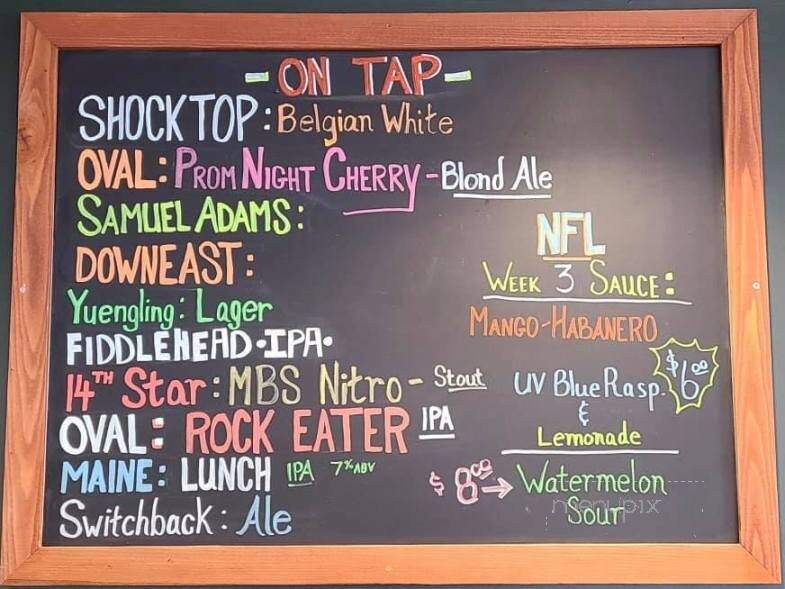 - ON TAP -
SHOCK TOP: Belgian White
OVAL: PROM NIGHT CHERRY - Blond Ale
SAMUEL ADAMS:
DOWNEAST:
Yuengling: Lager
FIDDLEHEAD • IPA •
14TH Star: MBS Nitro - Stout
OVAL: ROCK EATER IPA
MAINE: LUNCH IPA 7% ABV
Switchback: Ale
NFL
WEEK 3 SAUCE:
MANGO-HABANERO
UV Blue Rasp. $6.00
&
Lemonade
$8.00 → Watermelon
Sour
menupix